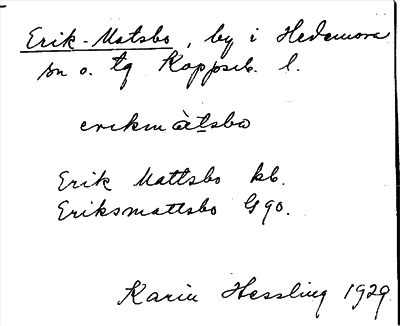 Erik-Matsbo, by i Hedemora
sn o. tg Kopparb. l.
erikmàtsbo
Erik Mattsbo kb.
Eriksmattsbo G 90.
Karin Hessling 1929